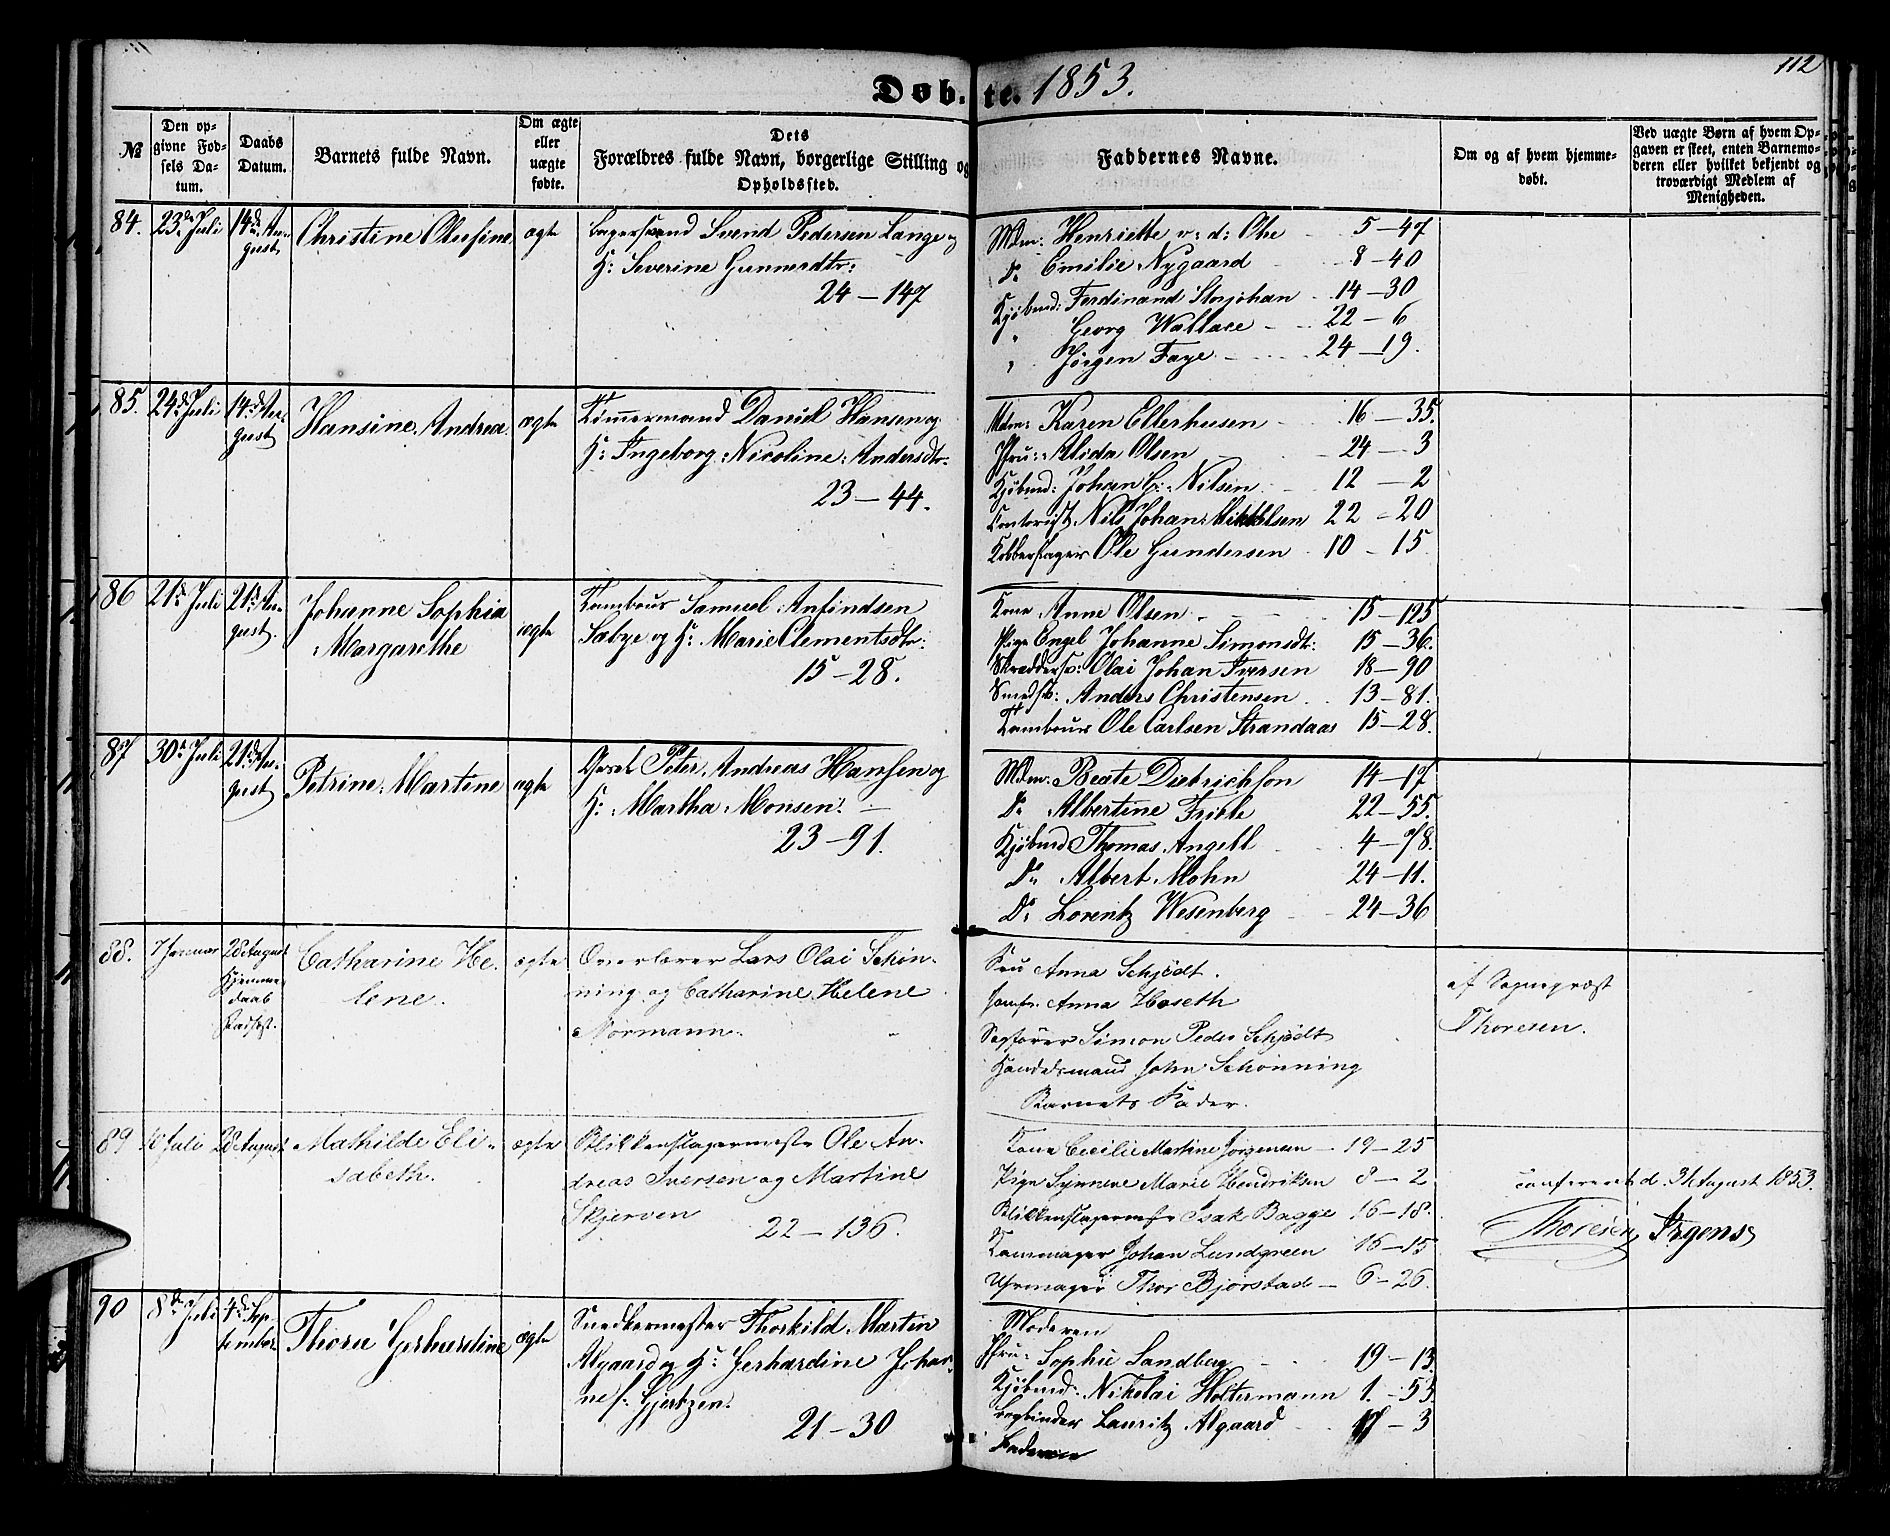 112
Døb. te. 1853.
№
Den op-
givne Fød-
sels Da-
tum.
Daabs
Datum.
Barnets fulde Navn.
Om ægte
eller
uægte
fødte.
Dets
Forældres fulde Navn, borgerlige Stilling og
Opholdssted.
Faddernes Navne.
Om og af hvem hjemme-
døbt.
Ved uægte Børn af hvem Op-
gaven er skeet, enten Barnemo-
deren eller hvilket bekjendt og
troværdigt Medlem af
Menigheden.
84. 23de Juli 14de Au-
gust
Christine Olufine
ægte
Bagersvend Svend Pedersen Lange og
H: Severine Gunnersdtr:
24 – 147
Mdm: Henriette v: d: Ohe 5 – 47
Do Emilie Nygaard 8 – 40
Kjøbmd: Ferdinand Storjohan 14 – 30
" Georg Wallace 22 – 6
" Jørgen Faye 24 – 19.
85. 24de Juli 14de Au-
gust
Hansine Andrea
ægte
Tømermand Daniel Hansen og
H: Ingeborg Nicoline Andersdtr.
23 – 44.
Mdm: Karen Ellerhusen 16 – 35.
Ffru: Alida Olsen 24 – 3
Kjøbmd: Johan G: Nilsen 12 – 2
Contorist Nils Johan Mikkelsen 22 – 20
Kobberslager Ole Gundersen 10 – 15.
86 21de Juli 21de Au-
gust.
Johanne Sophia
Margarethe
ægte
Tambour Samuel Anfindsen
Sæbye og H: Marie Clementsdtr.
15 – 28.
Kone Anne Olsen 15 – 125
Pige Engel Johanne Simonsdt: 15 – 36.
Skræddersv: Olai Johan Iversen 18 – 90
Smedsv: Anders Christensen 13 – 81.
Tambour Ole Carlsen Strandaas 15 – 28.
87 30te Juli 21de Au-
gust
Petrine Martine
ægte
Peter Andreas Hansen og
H: Martha Monsen
23 – 91.
Mdm: Beate Dietrichson 14 – 17
Do Albertine Friele 22 – 55.
Kjøbmd Thomas Angell 4 – 78.
Do Albert Mohn 24 – 11.
Do Lorentz Wesenberg 24 – 36
88. 7 Januar 28 August
Hjemme-
daab
Stadfæst.
Catharine He-
lene.
ægte
Overlærer Lars Olai Schøn-
ning og Catharine Helene
Normann.
Fru Anna Schjødt.
Jomfr. Anna Hoseth
Sagfører Simon Peder Schjødt
Handelsmand John Schønning
Barnets Fader.
af Sognepræst
Thoresen.
89 10 Juli 28 August
Mathilde Eli-
sabeth.
ægte
Blikkenslagermester Ole An-
dreas Iversen og Martine
Skjerven
22 – 136.
Kone Cecilie Martine Jørgensen 19 – 25
Pige Synneve Marie Hendriksen 8 – 2
Blikkenslagermester Isak Bagge 16 – 18.
Kammager Johan Lundgreen 16 – 15
Uhrmager Thor Bjørstad 6 – 26.
confereret d. 31 August 1853.
Thoresen Irgens
90 8de Juli 4de Sep-
tember
Thora Gerhardine
ægte
Snedkermester Thorkild Martin
Algaard og H: Gerhardine Johan-
ne f: Gjertzen.
21 – 30
Moderen
Ffru: Sophie Sandberg 19 – 13
Kjøbmd: Nikolai Holtermann 1. – 53
Bogbinder Lauritz Algaard 17 – 3
Faderen